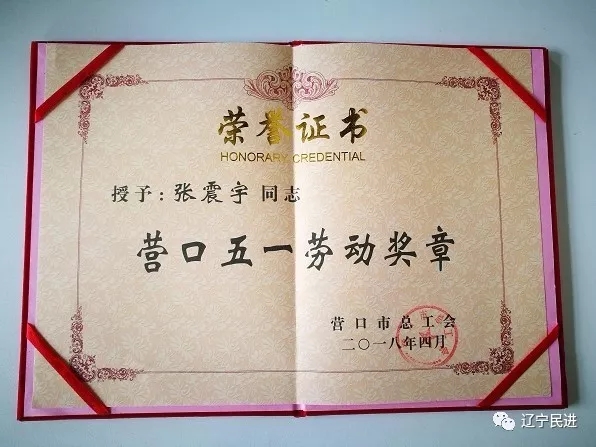 荣誉证书
HONORARY CREDENTIAL
授予：张震宇同志
营口五一劳动奖章
营口市总工会
二〇一八年四月
辽宁民进